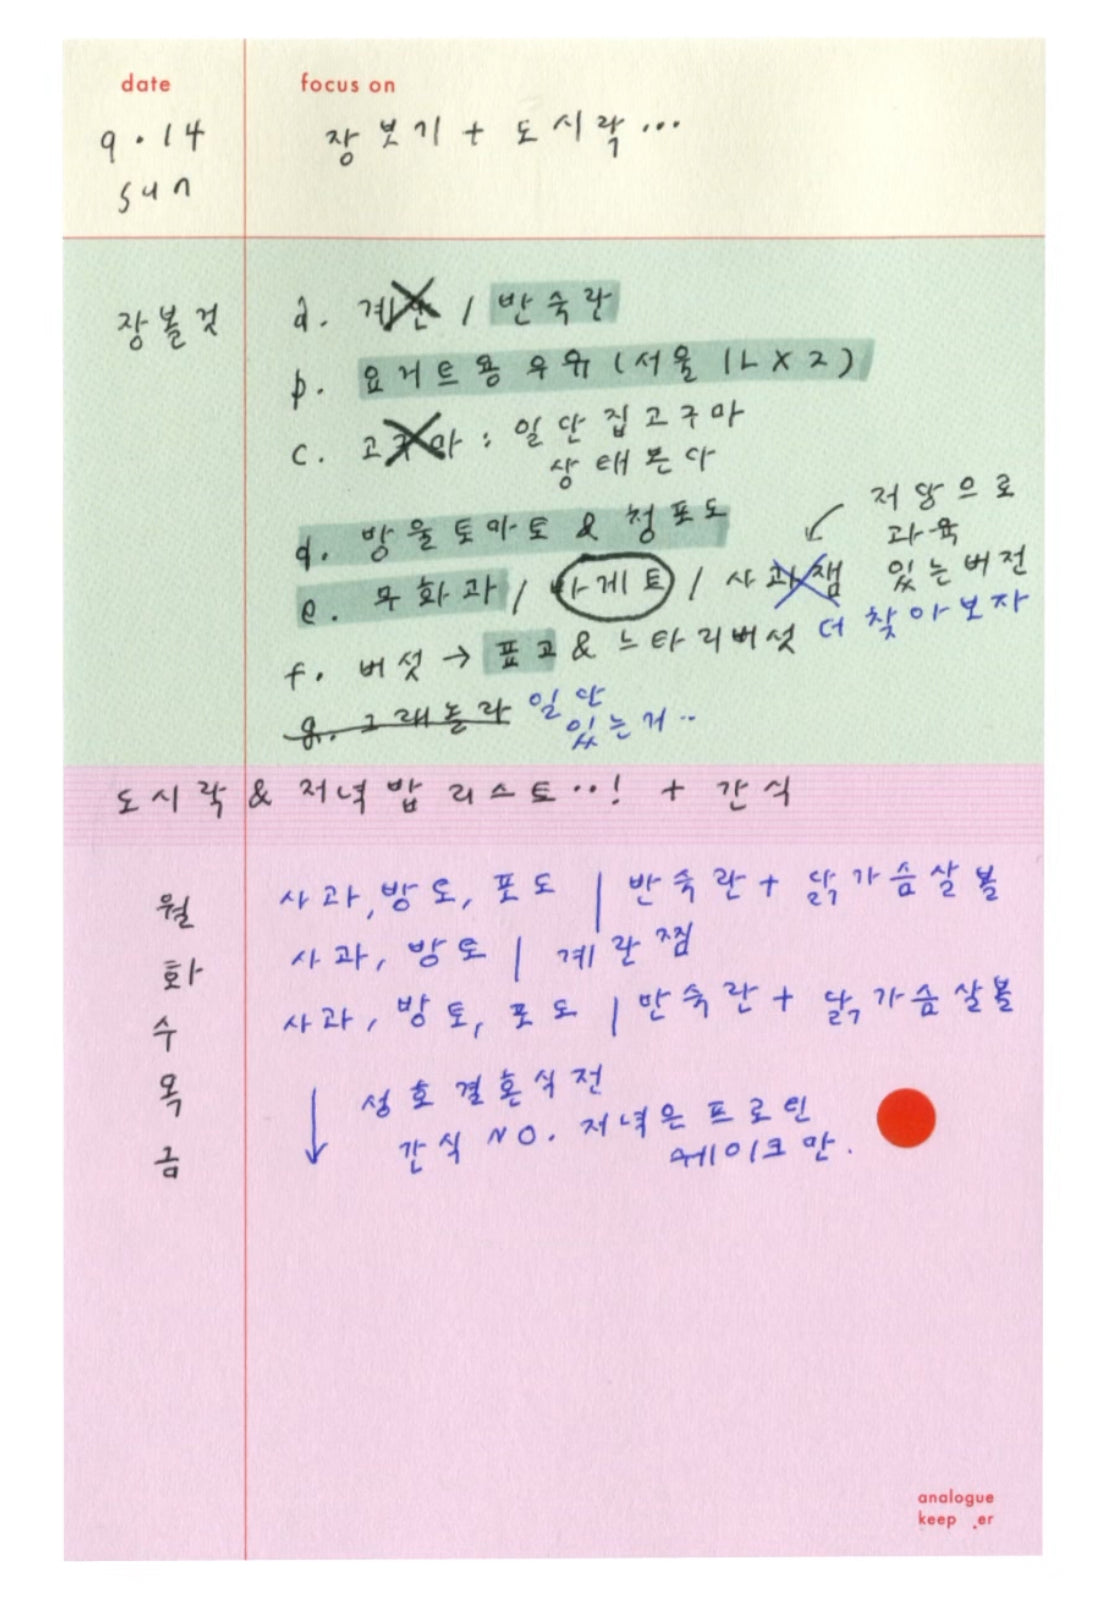 date
focus on
9.14
sun
장보기 + 도시락...
장볼것
a. 계란 / 반숙란
b. 요거트용 우유 (서울 1L X 2)
c. 고구마 : 일단 집고구마
상태본다
d. 방울토마토 & 청포도
e. 무화과 / 바게트 / 사과잼
저당으로
과육
있는버전
더 찾아보자
f. 버섯 → 표고 & 느타리버섯
g. 그래놀라 일단
있는거..
도시락 & 저녁밥 리스트..! + 간식
월 사과, 방토, 포도 | 반숙란 + 닭가슴살볼
화 사과, 방토 | 계란찜
수 사과, 방토, 포도 | 반숙란 + 닭가슴살볼
목 ↓ 성호결혼식전
간식 NO. 저녁은 프로틴
금 쉐이크만.
analogue
keep .er